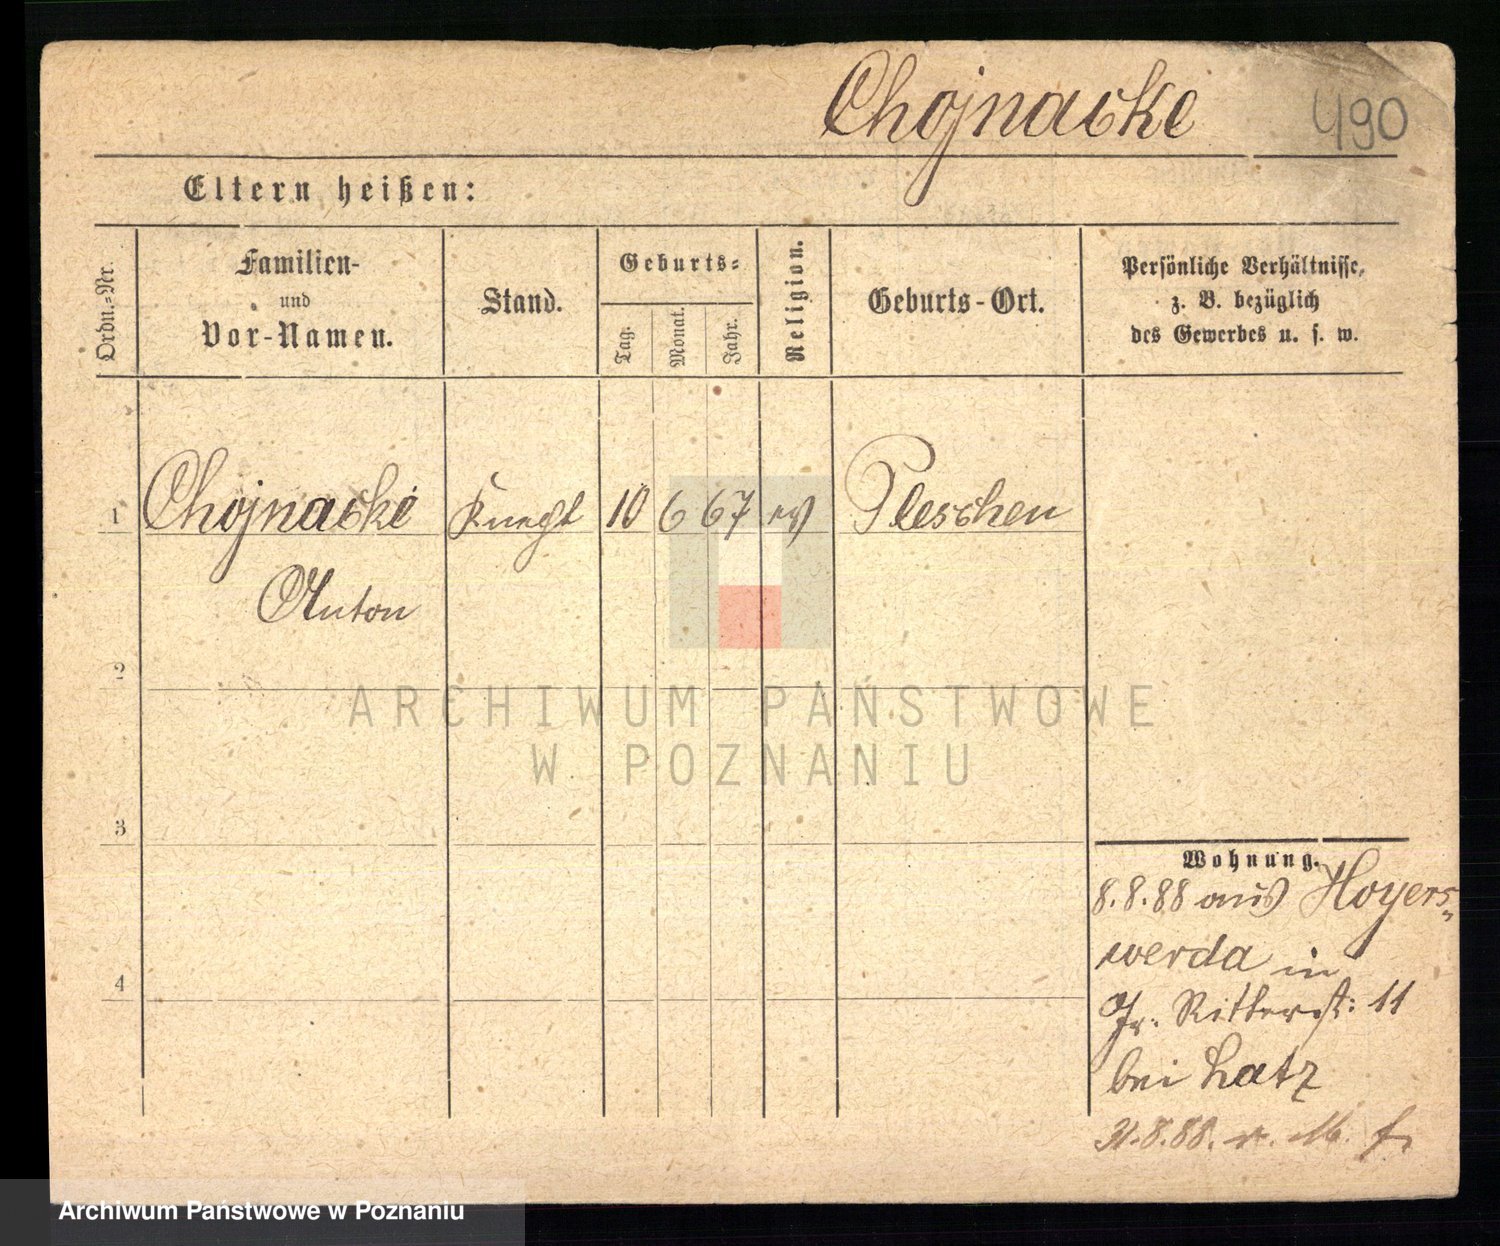 Chojnacke 490
Eltern heißen:
Ordn.-Nr.
Familien-
und
Vor-Namen.
Stand.
Geburts-
Tag.
Monat.
Jahr.
Religion.
Geburts-Ort.
Persönliche Verhältnisse,
z. B. bezüglich
des Gewerbes u. s. w.
1 Chojnacke Knecht 10 6 67 ev Pleschen
Anton
2
3
4
Wohnung.
8.8.88 aus Hoyers-
werda in
Fr. Ritterst: 11
bei Latz
31.8.88.
ARCHIWUM PAŃSTWOWE
W POZNANIU
Archiwum Państwowe w Poznaniu